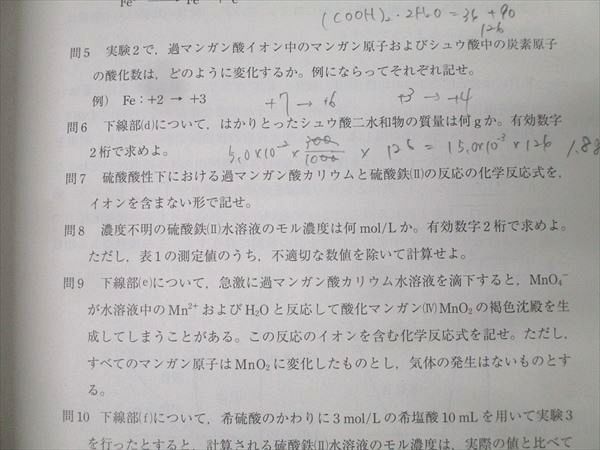 Fe²⁺ → Fe³⁺ + e⁻
(COOH)₂・2H₂O = 36 + 90
126
問5 実験2で,過マンガン酸イオン中のマンガン原子およびシュウ酸中の炭素原子
の酸化数は,どのように変化するか。例にならってそれぞれ記せ。
例) Fe:+2 → +3
+7 → +6 +3 → +4
問6 下線部(d)について,はかりとったシュウ酸二水和物の質量は何gか。有効数字
2桁で求めよ。
5.0×10⁻² × 300/1000 × 126 = 15.0×10⁻³ × 126 1.88
問7 硫酸酸性下における過マンガン酸カリウムと硫酸鉄(II)の反応の化学反応式を,
イオンを含まない形で記せ。
問8 濃度不明の硫酸鉄(II)水溶液のモル濃度は何mol/Lか。有効数字2桁で求めよ。
ただし,表1の測定値のうち,不適切な数値を除いて計算せよ。
問9 下線部(e)について,急激に過マンガン酸カリウム水溶液を滴下すると,MnO₄⁻
が水溶液中のMn²⁺およびH₂Oと反応して酸化マンガン(IV)MnO₂の褐色沈殿を生
成してしまうことがある。この反応のイオンを含む化学反応式を記せ。ただし,
すべてのマンガン原子はMnO₂に変化したものとし,気体の発生はないものとす
る。
問10 下線部(f)について,希硫酸のかわりに3mol/Lの希塩酸10mLを用いて実験3
を行ったとすると,計算される硫酸鉄(II)水溶液のモル濃度は,実際の値と比べて